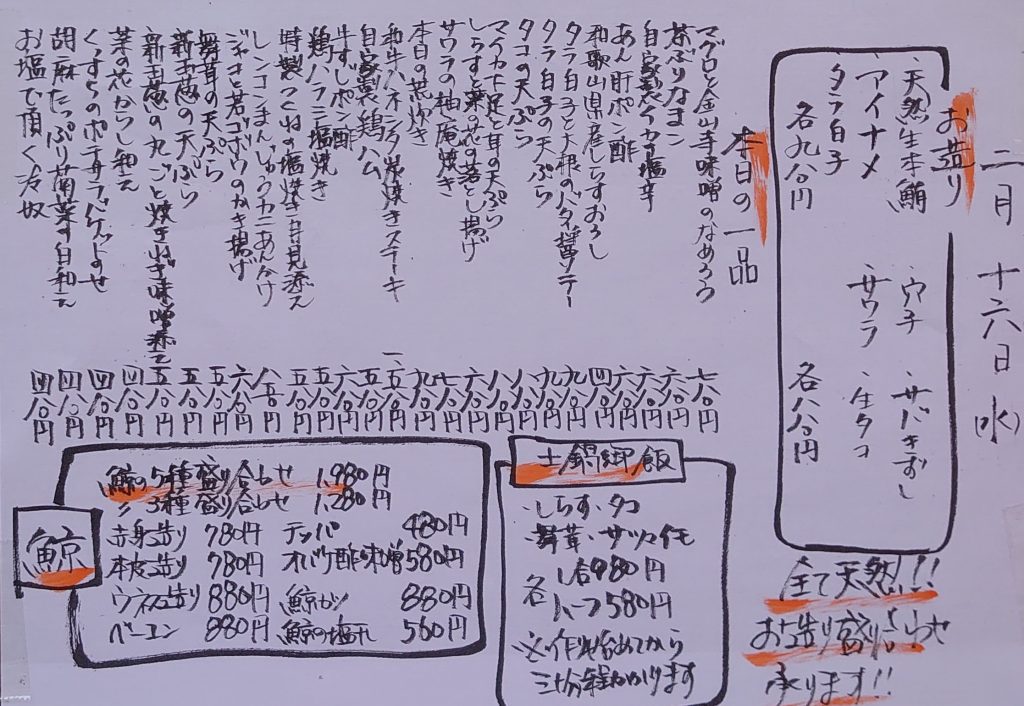 二月十六日(水)
お造り
・天然生本鮪
・アイナメ
タラ白子
各九八〇円
・穴子 ・サバきずし
・サワラ ・生タコ
各八八〇円
全て天然!!
お造り盛り合わせ
承ります!!
本日の一品
マグロと金山寺味噌のなめろう 七八〇円
茶ぶりなまこ 六八〇円
自家製イカの塩辛 六八〇円
あん肝ポン酢 六八〇円
和歌山県産しらすおろし 四八〇円
タラ白子と大根のバター醤ソテー 九八〇円
タラ白子の天ぷら 九八〇円
タコの天ぷら 八八〇円
マイカ下足と耳の天ぷら 八八〇円
しらすと菜の花の落とし揚げ 六八〇円
サワラの柚庵焼き 七八〇円
本日の荒炊き 九八〇円
和牛ハネシタ炭焼きステーキ 一、五八〇円
自家製鶏ハム 五八〇円
牛すじポン酢 六八〇円
鶏ハラミ塩焼き 五八〇円
特製つくねの塩焼き黄身添え 五八〇円
レンコンまんじゅうカニあんかけ 八八〇円
ジャコと若ゴボウのかき揚げ 六八〇円
舞茸の天ぷら 五八〇円
新玉葱の天ぷら 五八〇円
新玉葱の丸ごと焼きねぎ味噌添え 五八〇円
菜の花からし和え 四八〇円
くずれのポテサラバゲットのせ 四八〇円
胡麻たっぷり菊菜の白和え 四八〇円
お塩で頂く冷奴 四八〇円
土鍋御飯
・しらす・タコ
・舞茸・サツマイモ
各
1合980円
ハーフ580円
・必作り始めてから
三十分程かかります
鯨
鯨の5種盛り合わせ 1,980円
〃 3種盛り合わせ 1,280円
赤身造り 780円 テッパ 480円
本皮造り 780円 オバケ酢味噌 580円
ウネス造り 880円 鯨カツ 880円
ベーコン 880円 鯨の塩タレ 560円